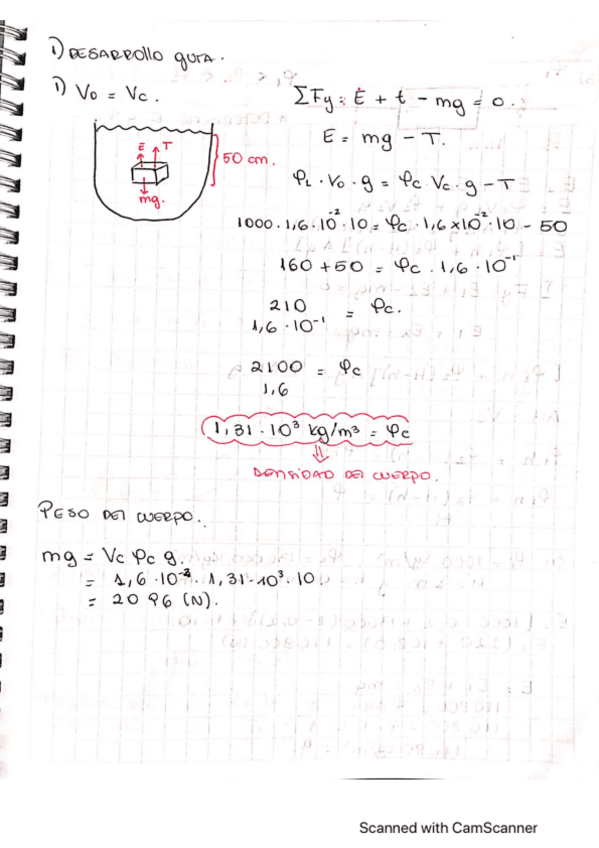 1) DESARROLLO GUIA.
1) Vo = Vc.
ΣFy = E + t - mg = 0.
E = mg - T.
E T
50 cm.
mg.
φL · Vo · g = φc Vc · g - T
1000 · 1,6 · 10⁻² · 10 = φc · 1,6 x 10⁻² · 10 - 50
160 + 50 = φc · 1,6 · 10⁻¹
210 = φc.
1,6 · 10⁻¹
2100 = φc
1,6
1,31 · 10³ kg/m³ = φc
DENSIDAD DEl CUERPO.
PESO DEl CUERPO.
mg = Vc φc g.
= 1,6 · 10⁻² · 1,31 · 10³ · 10
= 20 96 (N).
Scanned with CamScanner